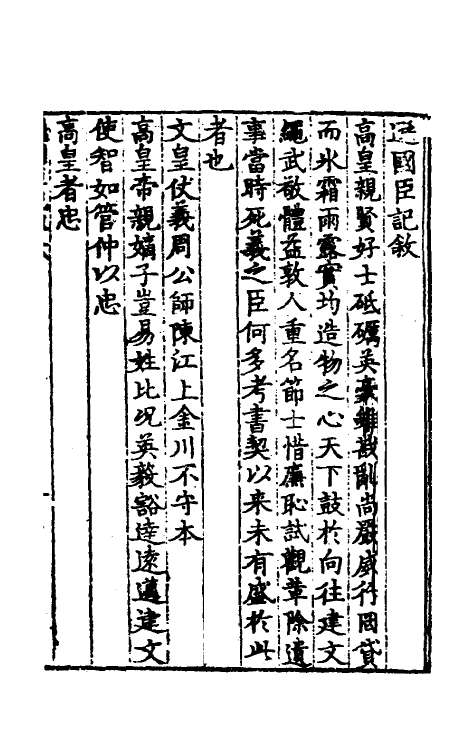 遜國臣記敘
高皇親賢好士砥礪英豪雖戡亂尚嚴威行罔貸
而氷霜雨露實均造物之心天下鼓於向往建文
繩武敬體益敦人重名節士惜廉恥試觀革除遺
事當時死義之臣何多考書契以来未有盛於此
者也
文皇仗義周公師陳江上金川不守本
高皇帝親嫡子豈易姓比况英毅豁達遠邁建文
使智如管仲以忠
高皇者忠